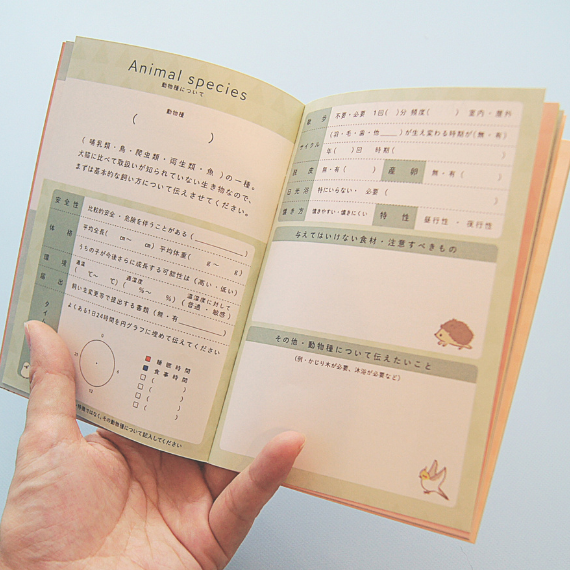 Animal species
動物種について
動物種
(　　　)
(哺乳類・鳥・爬虫類・両生類・魚)の一種。
犬猫に比べて取扱いが知られていない生き物なので、
まずは基本的な飼い方について伝えさせてください。
安全性 比較的安全・危険を伴うことがある(　　　)
体格 平均全長( cm〜 cm) 平均体重( g〜 g)
うちの子が今後さらに成長する可能性は(高い・低い)
環境 適温( て〜 て) 適湿度( %〜 %) 温湿度に対して(普通・敏感)
届出 飼い主変更等で提出する書類(無・有　　　)
よくある1日24時間を円グラフに埋めて伝えてください
0
6
12
睡眠時間
食事時間
□( )
□( )
□( )
その動物種について記入してください
不要・必要 1回( )分 頻度( ) 室内・屋外
サイクル (羽・毛・歯・他___)が生え変わる時期が(無・有)
年( )回 時期( )
無・有( ) 産卵 無・有( )
日光浴 特にいらない・必要( )
懐き方 懐きやすい・懐きにくい 特性 昼行性・夜行性
与えてはいけない食材・注意すべきもの
その他・動物種について伝えたいこと
(例・かじり木が必要、沐浴が必要など)